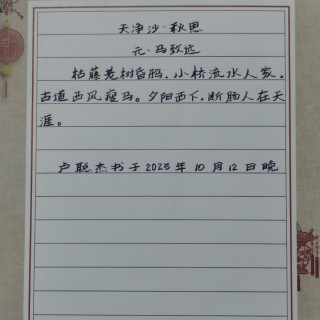 天净沙·秋思
元·马致远
枯藤老树昏鸦，小桥流水人家，
古道西风瘦马。夕阳西下，断肠人在天
涯。
卢聪杰书于2025年10月12日晚